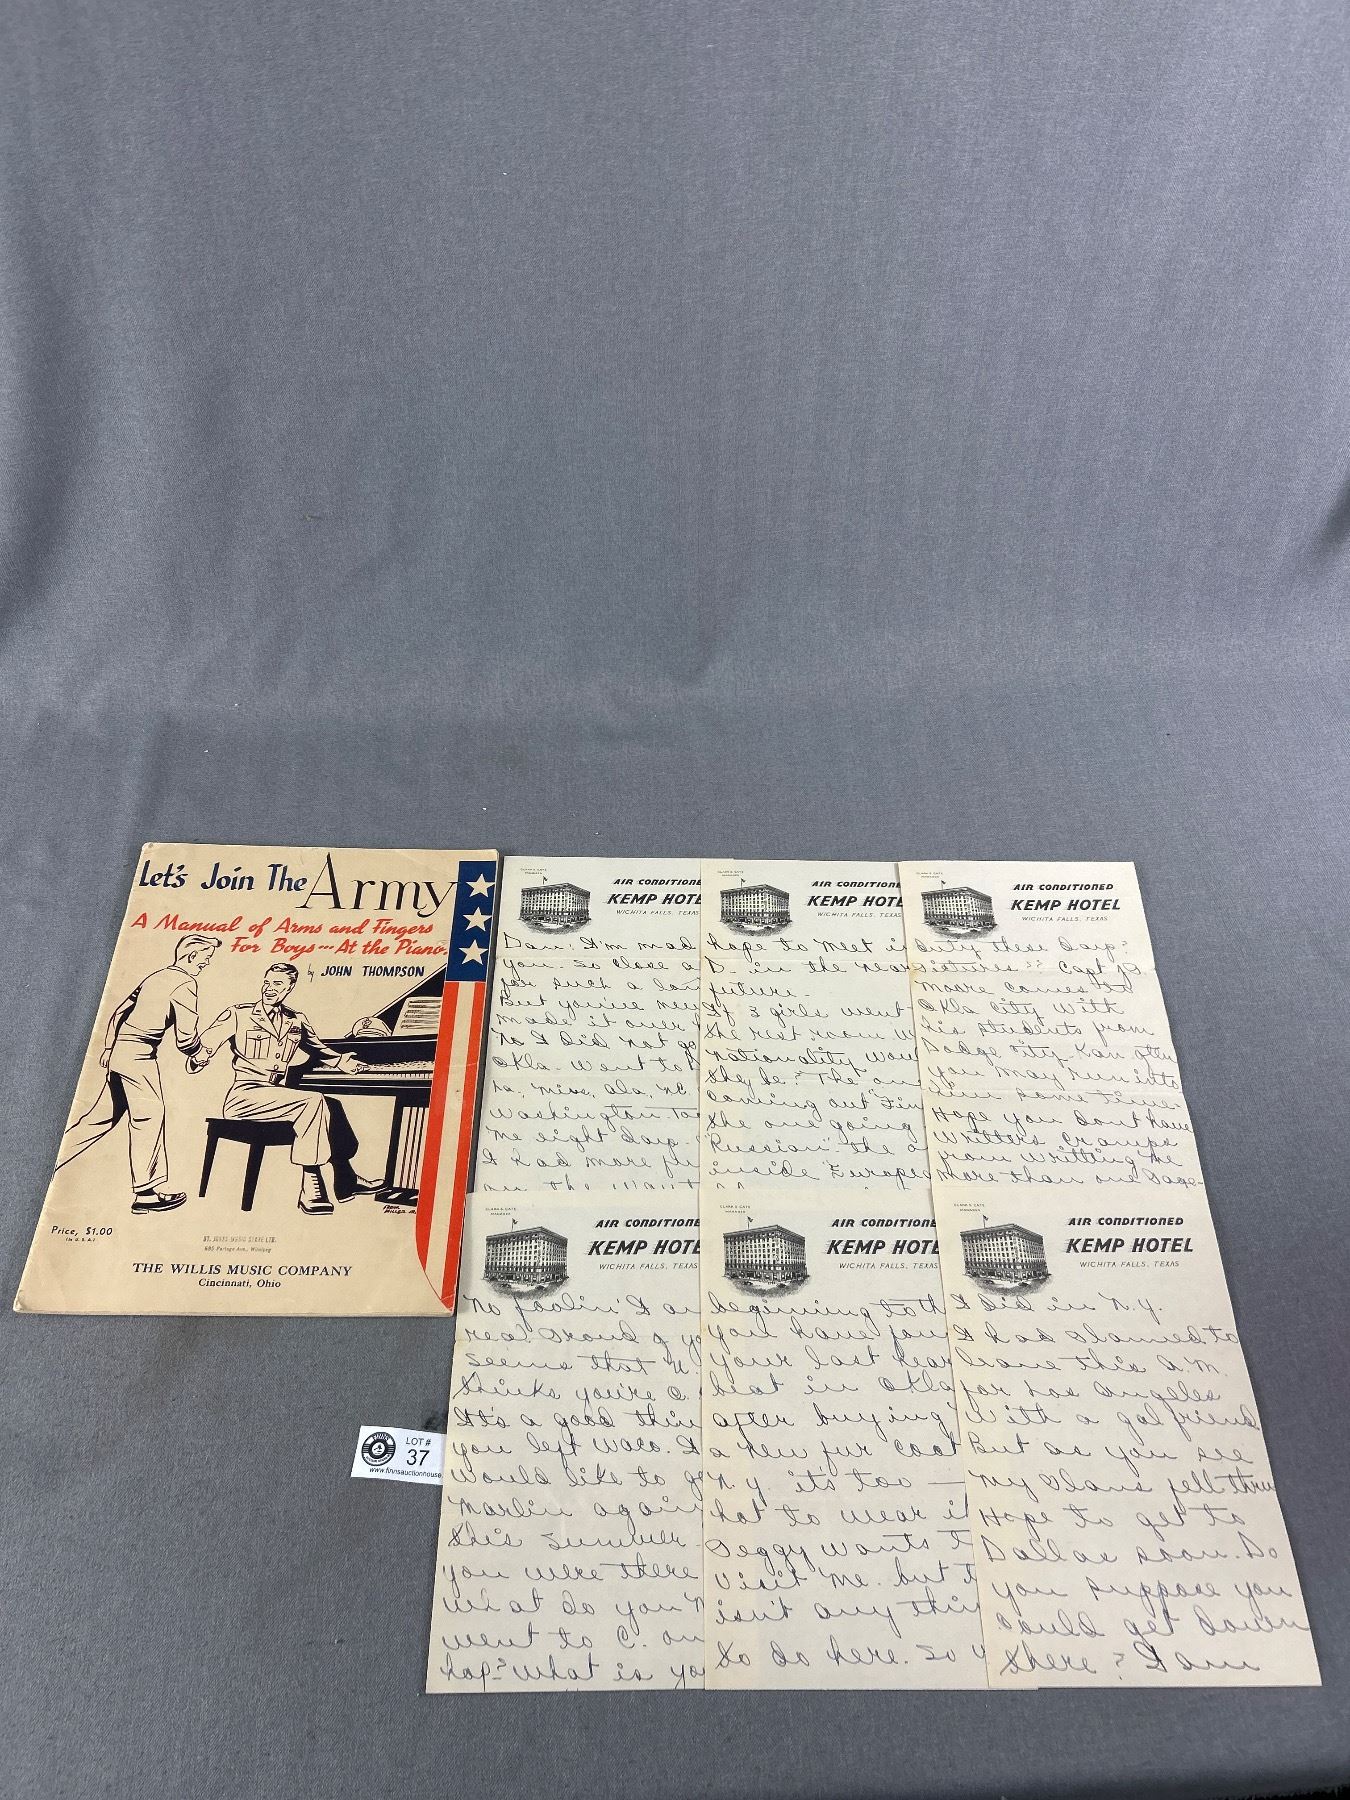 Let's Join The Army
A Manual of Arms and Fingers
For Boys --- At the Piano.
by JOHN THOMPSON
Price, $1.00
(in U.S.A.)
ST. JOHNS MUSIC STORE LTD.
685 Portage Ave., Winnipeg
THE WILLIS MUSIC COMPANY
Cincinnati, Ohio
LOT #
37
www.finnsauctionhouse
CLARK S. CATE
MANAGER
AIR CONDITIONED
KEMP HOTE
WICHITA FALLS, TEXAS
Dan: I'm mad
you. So close a
for such a lon
But you've nev
made it over
No I did not go
Okla. Went to
La., Miss, Ala, N.C.
Washington
me eight days.
I had more fu
CLARK S. CATE
MANAGER
AIR CONDITIONE
KEMP HOTE
WICHITA FALLS, TEXAS
hope to meet i
D. in the near
future.
If 3 girls went
the rest room w
nationality wou
she be? The on
coming out "Fin
the one going
"Russian". The o
inside "European
CLARK S. CATE
MANAGER
AIR CONDITIONED
KEMP HOTEL
WICHITA FALLS, TEXAS
Duty these days?
Pictures?? Capt
Moore comes
Okla City with
his students from
Dodge City-Kan often
you may run into
him some time.
Hope you don't have
writters cramps
from writting me
more than one page-
CLARK S. CATE
MANAGER
AIR CONDITIONE
KEMP HOTE
WICHITA FALLS, TEXAS
No foolin' I am
real Proud of yo
Seems that
thinks you're
It's a good thin
you left Waco. I
would like to go
Marlin again
this summer-
you were there
what do you
went to C. on
hap-? What is yo
CLARK S. CATE
MANAGER
AIR CONDITIONE
KEMP HOTE
WICHITA FALLS, TEXAS
beginning to th
you have fou
your last hear
beat in Okla
after buying
a new fur coat
N.Y. it's too —
hot to wear i
Peggy wants t
visit me. but t
isn't any thin
to do here. So y
CLARK S. CATE
MANAGER
AIR CONDITIONED
KEMP HOTEL
WICHITA FALLS, TEXAS
I did in N.Y.
I had planned to
leave this A.M.
for Los Angeles
with a gal friend
But as you see
my plans fell thru
Hope to get to
Dallas soon. Do
you suppose you
could get down
there? I am